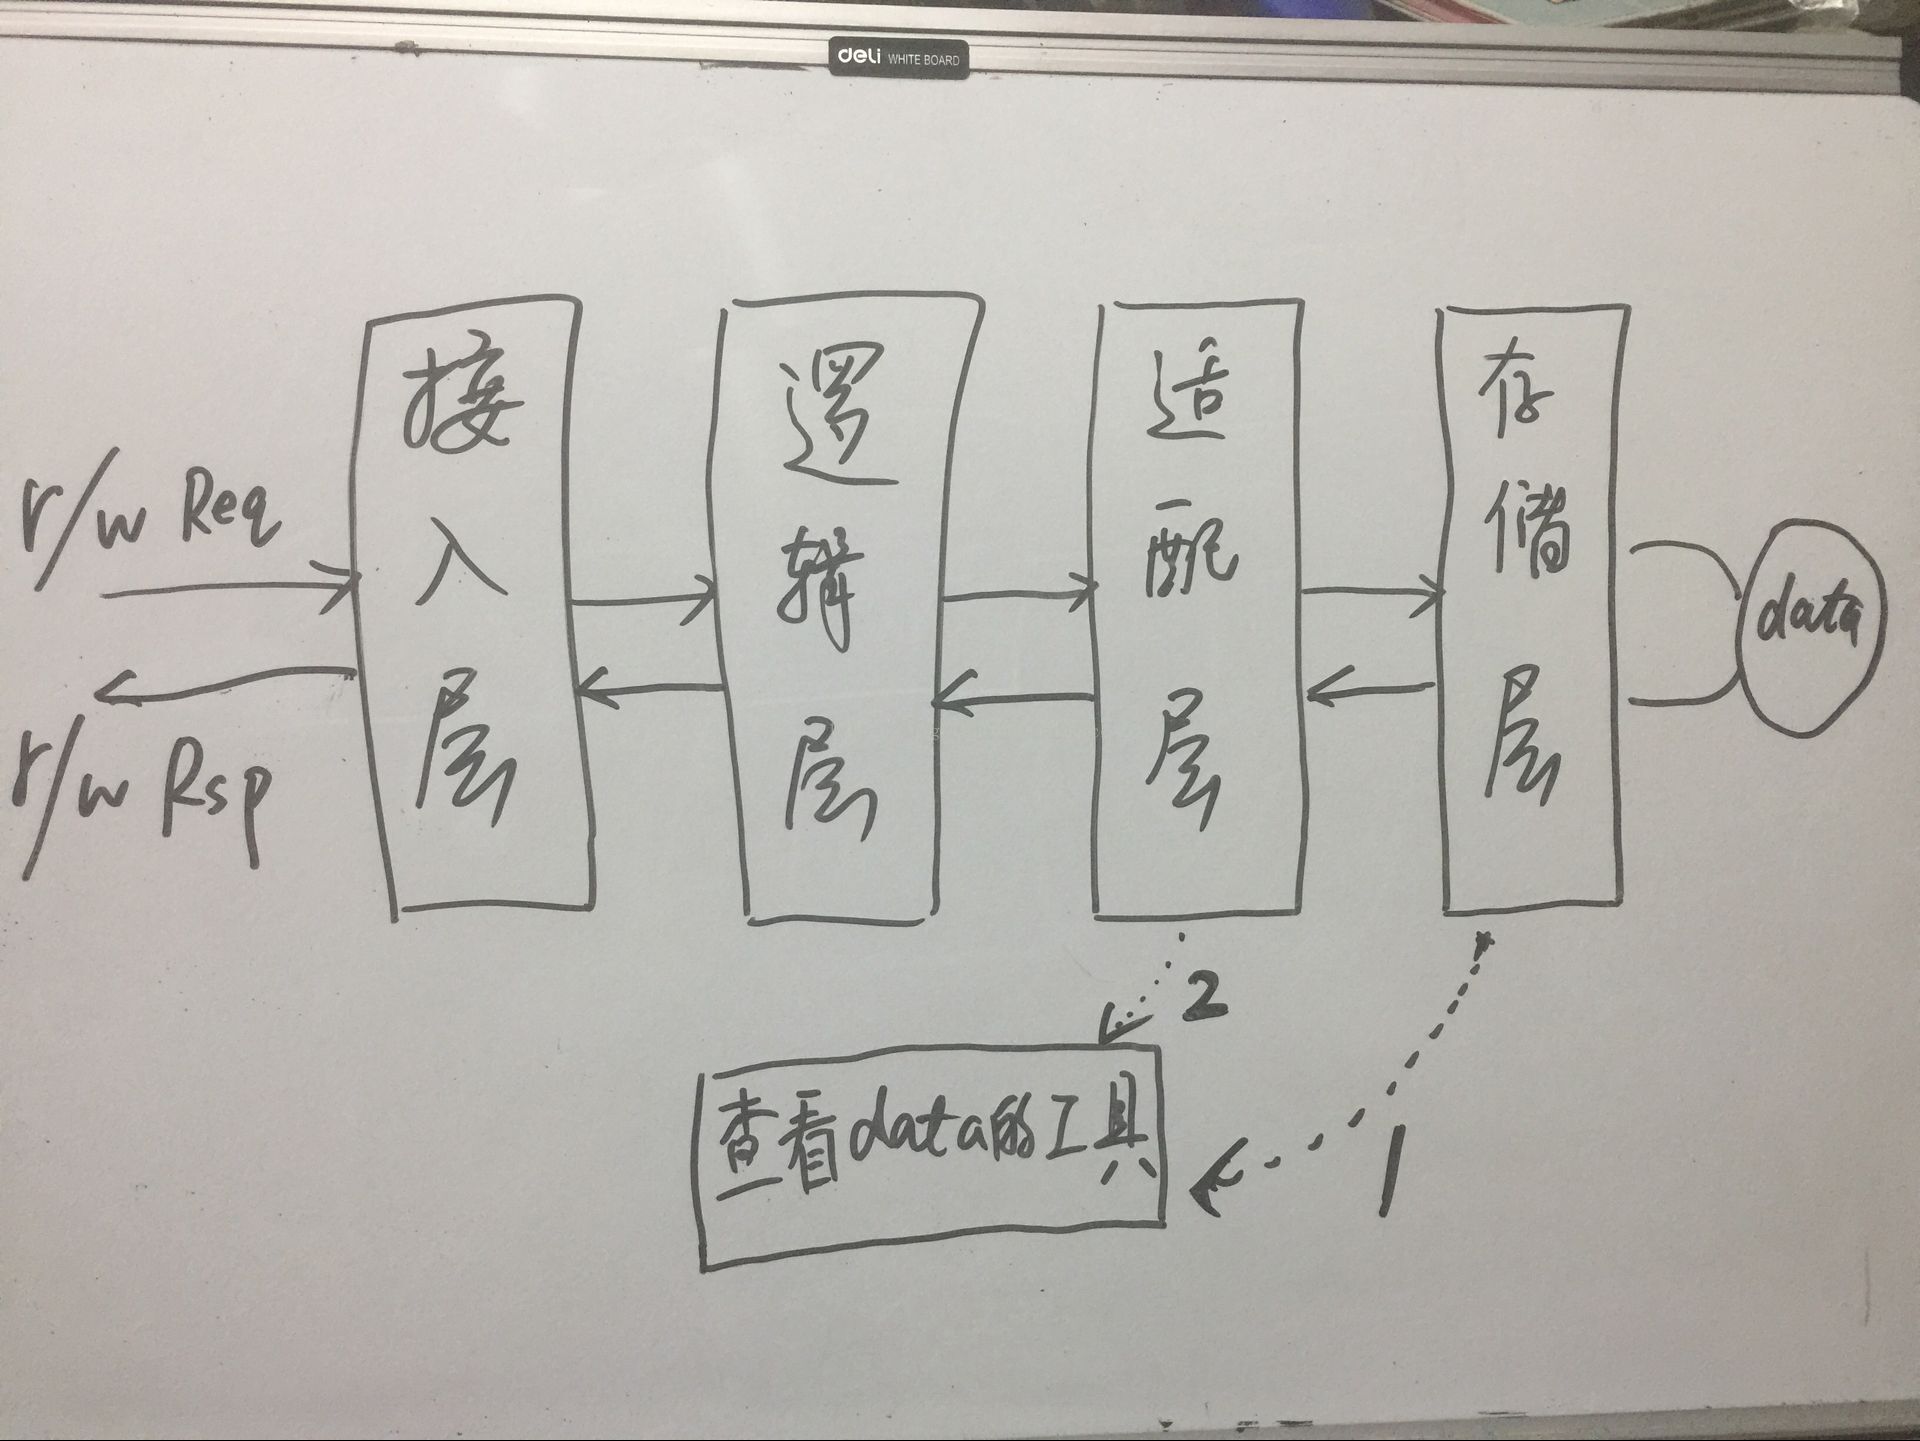 deli WHITE BOARD
r/w Req
r/w Rsp
接入层
逻辑层
适配层
存储层
data
2
1
查看data的工具